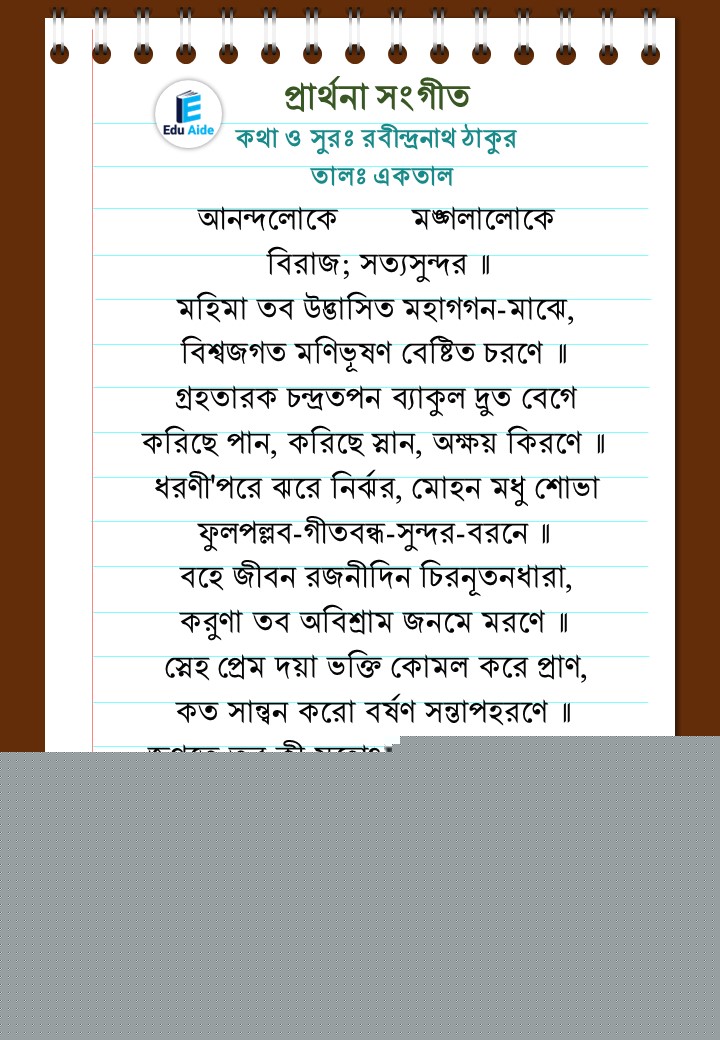 প্রার্থনা সংগীত
Edu Aide
কথা ও সুরঃ রবীন্দ্রনাথ ঠাকুর
তালঃ একতাল
আনন্দলোকে মঙ্গলালোকে
বিরাজ; সত্যসুন্দর ॥
মহিমা তব উদ্ভাসিত মহাগগন-মাঝে,
বিশ্বজগত মণিভূষণ বেষ্টিত চরণে ॥
গ্রহতারক চন্দ্রতপন ব্যাকুল দ্রুত বেগে
করিছে পান, করিছে স্নান, অক্ষয় কিরণে ॥
ধরণী'পরে ঝরে নির্ঝর, মোহন মধু শোভা
ফুলপল্লব-গীতবন্ধ-সুন্দর-বরনে ॥
বহে জীবন রজনীদিন চিরনূতনধারা,
করুণা তব অবিশ্রাম জনমে মরণে ॥
স্নেহ প্রেম দয়া ভক্তি কোমল করে প্রাণ,
কত সান্ত্বন করো বর্ষণ সন্তাপহরণে ॥